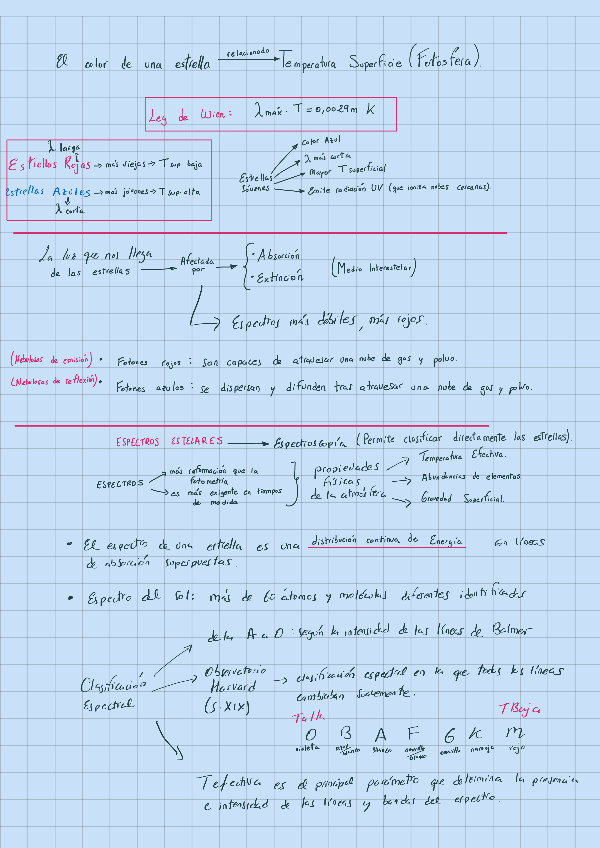 El color de una estrella relacionado Temperatura Superficie (Fotosfera)
Ley de Wien: λ máx · T = 0,0029m K
λ larga
Estrellas Rojas → más viejas → T sup baja
Estrellas Azules → más jóvenes → T sup alta
λ corta
Estrellas Jóvenes
Color Azul
λ más corta
Mayor T superficial
Emite radiación UV (que ioniza nubes cercanas)
La luz que nos llega
de las estrellas
Afectada
por
· Absorción
· Extinción
(Medio Interestelar)
Espectros más débiles, más rojos.
(Nebulosas de emisión) • Fotones rojos: son capaces de atravesar una nube de gas y polvo.
(Nebulosas de reflexión) • Fotones azules: se dispersan y difunden tras atravesar una nube de gas y polvo.
ESPECTROS ESTELARES → Espectroscopía (Permite clasificar directamente las estrellas).
ESPECTROS
más información que la
fotometría
es más exigente en tiempos
de medida
propiedades
físicas
de la atmósfera
Temperatura Efectiva.
Abundancias de elementos
Gravedad Superficial.
• El espectro de una estrella es una distribución continua de Energía con líneas
de absorción superpuestas.
• Espectro del sol: más de 60 átomos y moléculas diferentes identificados
Clasificación
Espectral
de la A a O: según la intensidad de las líneas de Balmer
Observatorio
Harvard
(S. XIX)
→ clasificación espectral en la que todas las líneas
cambiaban suavemente.
T alta T Baja
O B A F G K M
violeta azul blanco blanco amarillo blanco amarillo naranja rojo
T efectiva es el principal parámetro que determina la presencia
e intensidad de las líneas y bandas del espectro.